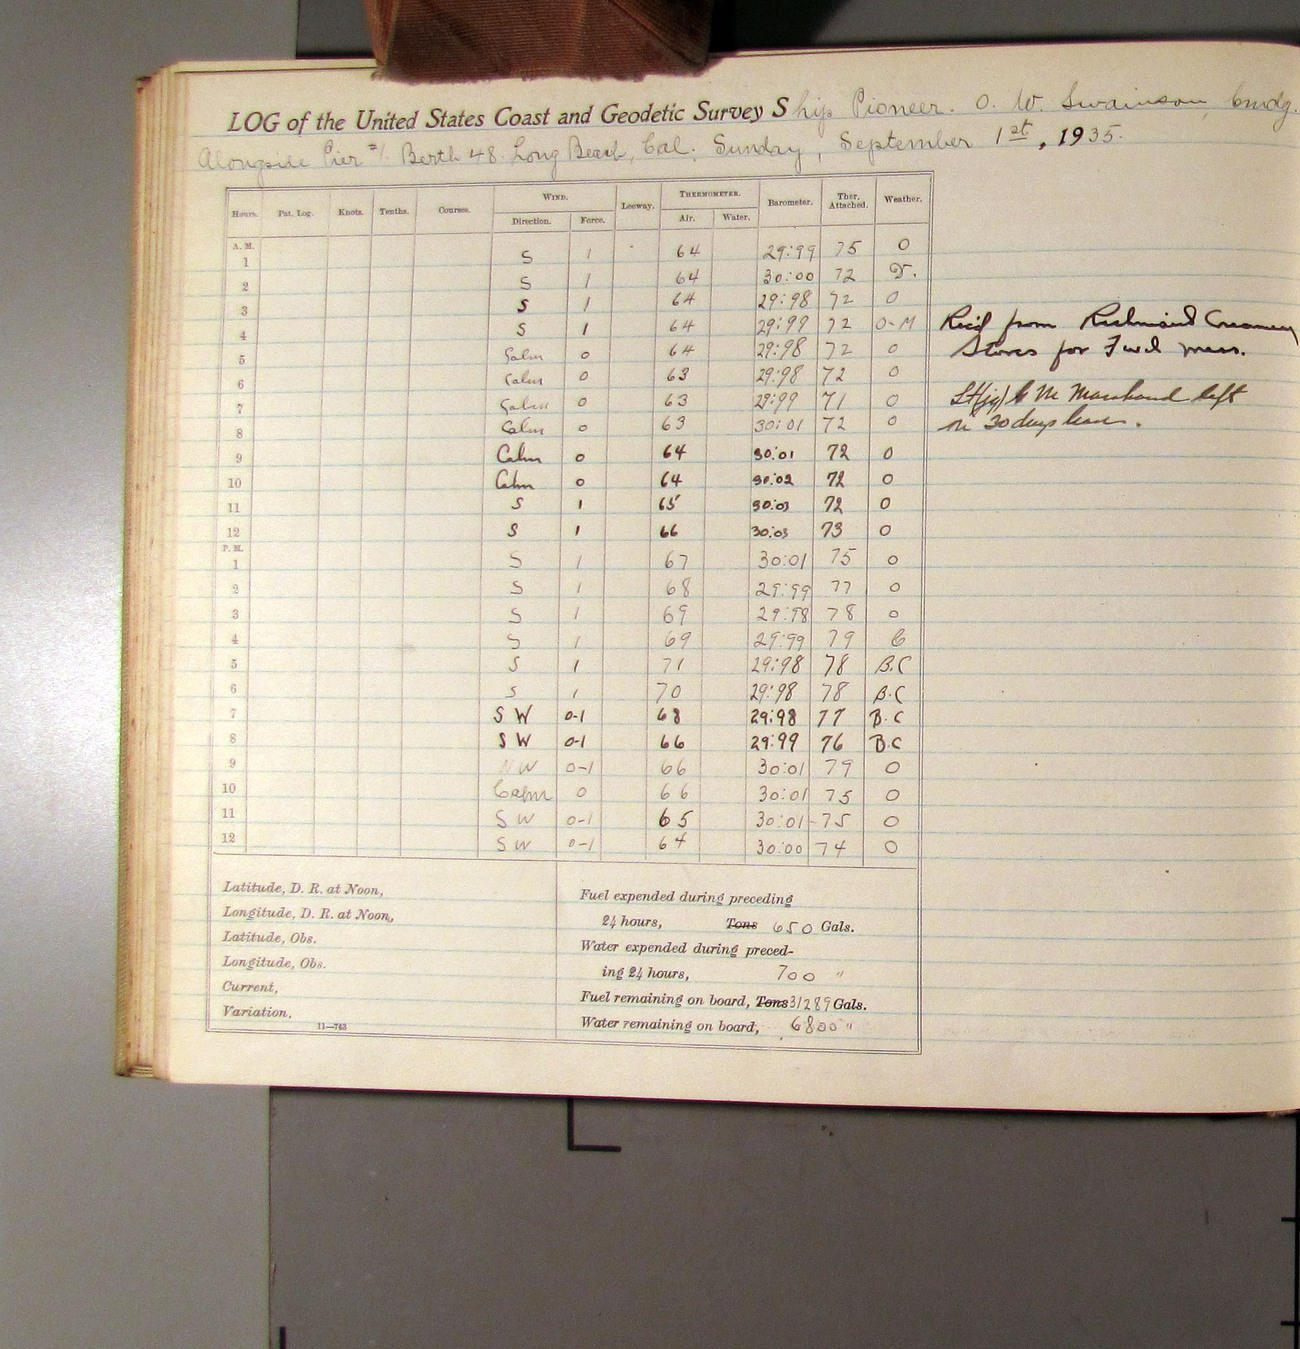 LOG of the United States Coast and Geodetic Survey Ship Pioneer. O. W. Swainson, Cmdg.
Alongside Pier #1. Berth 48. Long Beach, Cal. Sunday, September 1st, 1935.
Hours. Pat. Log. Knots. Tenths. Courses. WIND. Leeway. THERMOMETER. Barometer. Ther. Attached. Weather.
Direction. Force. Air. Water.
A. M.
1 S 1 64 29:99 75 O
2 S 1 64 30:00 72
3 S 1 64 29:98 72 O
4 S 1 64 29:99 72 O-M
5 Calm 0 64 29:98 72 O
6 Calm 0 63 29:98 72 O
7 Calm 0 63 29:99 71 O
8 Calm 0 63 30:01 72 O
9 Calm 0 64 30:01 72 O
10 Calm 0 64 30:02 72 O
11 S 1 65 30:03 72 O
12 S 1 66 30:03 73 O
P. M.
1 S 1 67 30:01 75 O
2 S 1 68 29:99 77 O
3 S 1 69 29:98 78 O
4 S 1 69 29:99 79 C
5 S 1 71 29:98 78 B.C
6 S 1 70 29:98 78 B.C
7 S W 0-1 68 29:98 77 B.C
8 S W 0-1 66 29:99 76 B.C
9 N W 0-1 66 30:01 79 O
10 Calm 0 66 30:01 75 O
11 S W 0-1 65 30:01 75 O
12 S W 0-1 64 30:00 74 O
Rec'd from Richmond Creamery
Stores for Fwd mess.
Lt(jg) C M left
on 30 days leave.
Latitude, D. R. at Noon,
Longitude, D. R. at Noon,
Latitude, Obs.
Longitude, Obs.
Current,
Variation,
11—763
Fuel expended during preceding
24 hours, Tons 650 Gals.
Water expended during preced-
ing 24 hours, 700 "
Fuel remaining on board, Tons 31289 Gals.
Water remaining on board, 6800 "